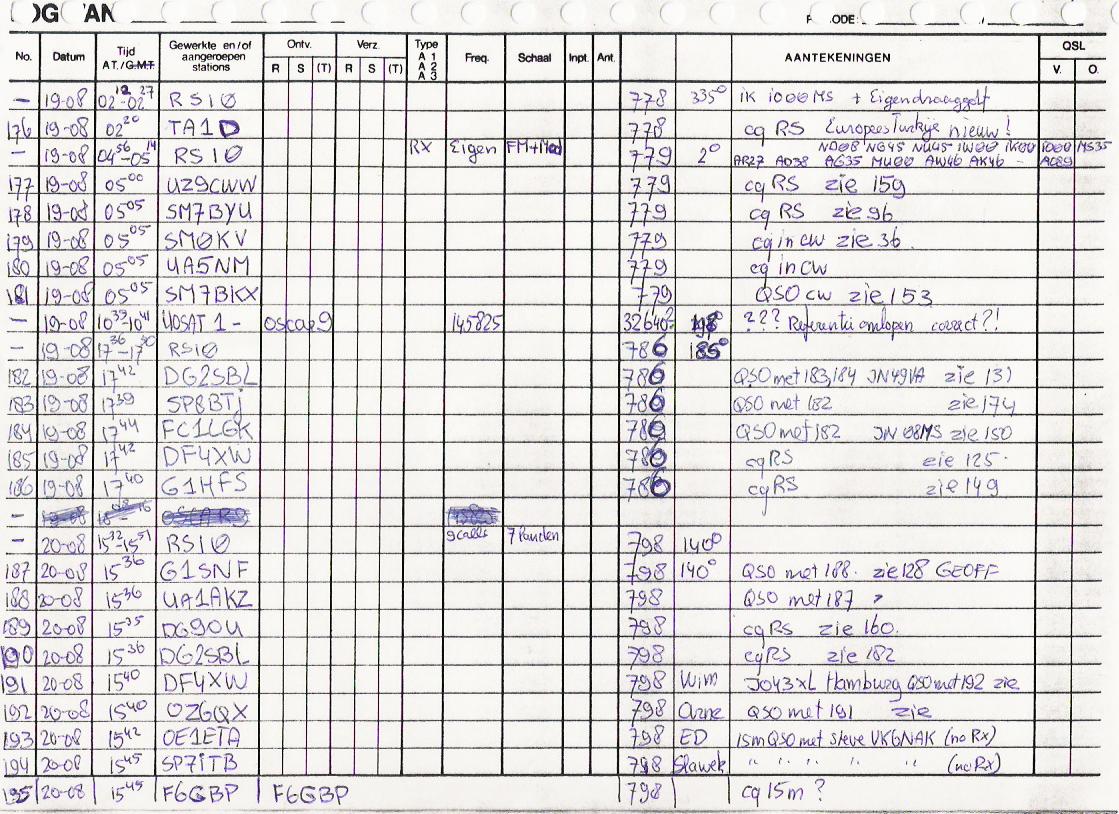 OG AN ODE: /
No. Datum Tijd A.T./G.M.T. Gewerkte en/of aangeroepen stations Ontv. R S (T) Verz. R S (T) Type A 1 A 2 A 3 Freq. Schaal Inpt. Ant. AANTEKENINGEN QSL V. O.
— 19-08 02 12-02 27 RS10 778 335° iK iO00MS + Eigendraaggolf
176 19-08 02 20 TA1D 778 cq RS Europees Turkije nieuw!
— 19-08 04 56-05 14 RS10 RX Eigen 779 2° ND08 NG45 NU45 IW00 IK00 IO00 MS35
AR27 AD38 AG35 MU00 AW46 AK46 - AC89
177 19-08 05 00 UZ9CWW 779 cq RS zie 159
178 19-08 05 05 SM7BYU 779 cq RS zie 96
179 19-08 05 05 SM0KV 779 cq in cw zie 36
180 19-08 05 05 UA5NM 779 cq in cw
181 19-08 05 05 SM7BKX 779 QSO cw zie 153
— 19-08 10 39-10 41 UOSAT 1 - oscar 9 145825 32640? 198° ??? Referentie omlopen correct?!
— 19-08 17 36-17 50 RS10 786 185°
182 19-08 17 42 DG2SBL 786 QSO met 183,184 JN49VA zie 131
183 19-08 17 39 SP8BTj 786 QSO met 182 zie 174
184 19-08 17 44 FC1LGK 786 QSO met 182 JN08MS zie 150
185 19-08 17 42 DF4XW 786 cq RS zie 125
186 19-08 17 40 G1HFS 786 cq RS zie 149
— 19-08
— 20-08 15 32-15 51 RS10 9 calls 7 landen 798 140°
187 20-08 15 36 G1SNF 798 140° QSO met 188. zie 128 GEOFF
188 20-08 15 36 UA1AKZ 798 QSO met 187 >
189 20-08 15 35 DG9OU 798 cq RS zie 160.
190 20-08 15 36 DG2SBL 798 cq RS zie 182
191 20-08 15 40 DF4XW 798 Wim JO43XL Hamburg QSO met 192 zie
192 20-08 15 40 OZ6QX 798 Arne QSO met 191 zie
193 20-08 15 42 OE1ETA 798 ED 15m QSO met steve VK6NAK (no Rx)
194 20-08 15 45 SP7iTB 798 Slawek " " " " " (no Rx)
195 20-08 15 45 F6GBP F6GBP 798 cq 15m ?